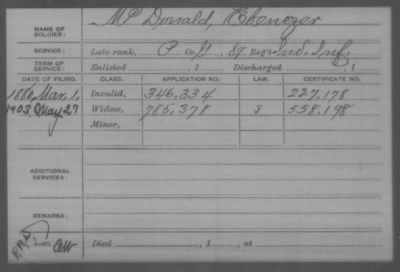 NAME OF SOLDIER: McDonald, Ebenezer
SERVICE: Late rank, P Co. G, 87 Reg't Ind. Inf.
TERM OF SERVICE: Enlisted , 1 Discharged , 1
DATE OF FILING. CLASS. APPLICATION NO. LAW. CERTIFICATE NO.
1880, Mar. 1, Invalid, 346,334 227,178
1903, May 27 Widow, 785,378 558,198
Minor,
ADDITIONAL SERVICES:
REMARKS:
Died , 1 , at